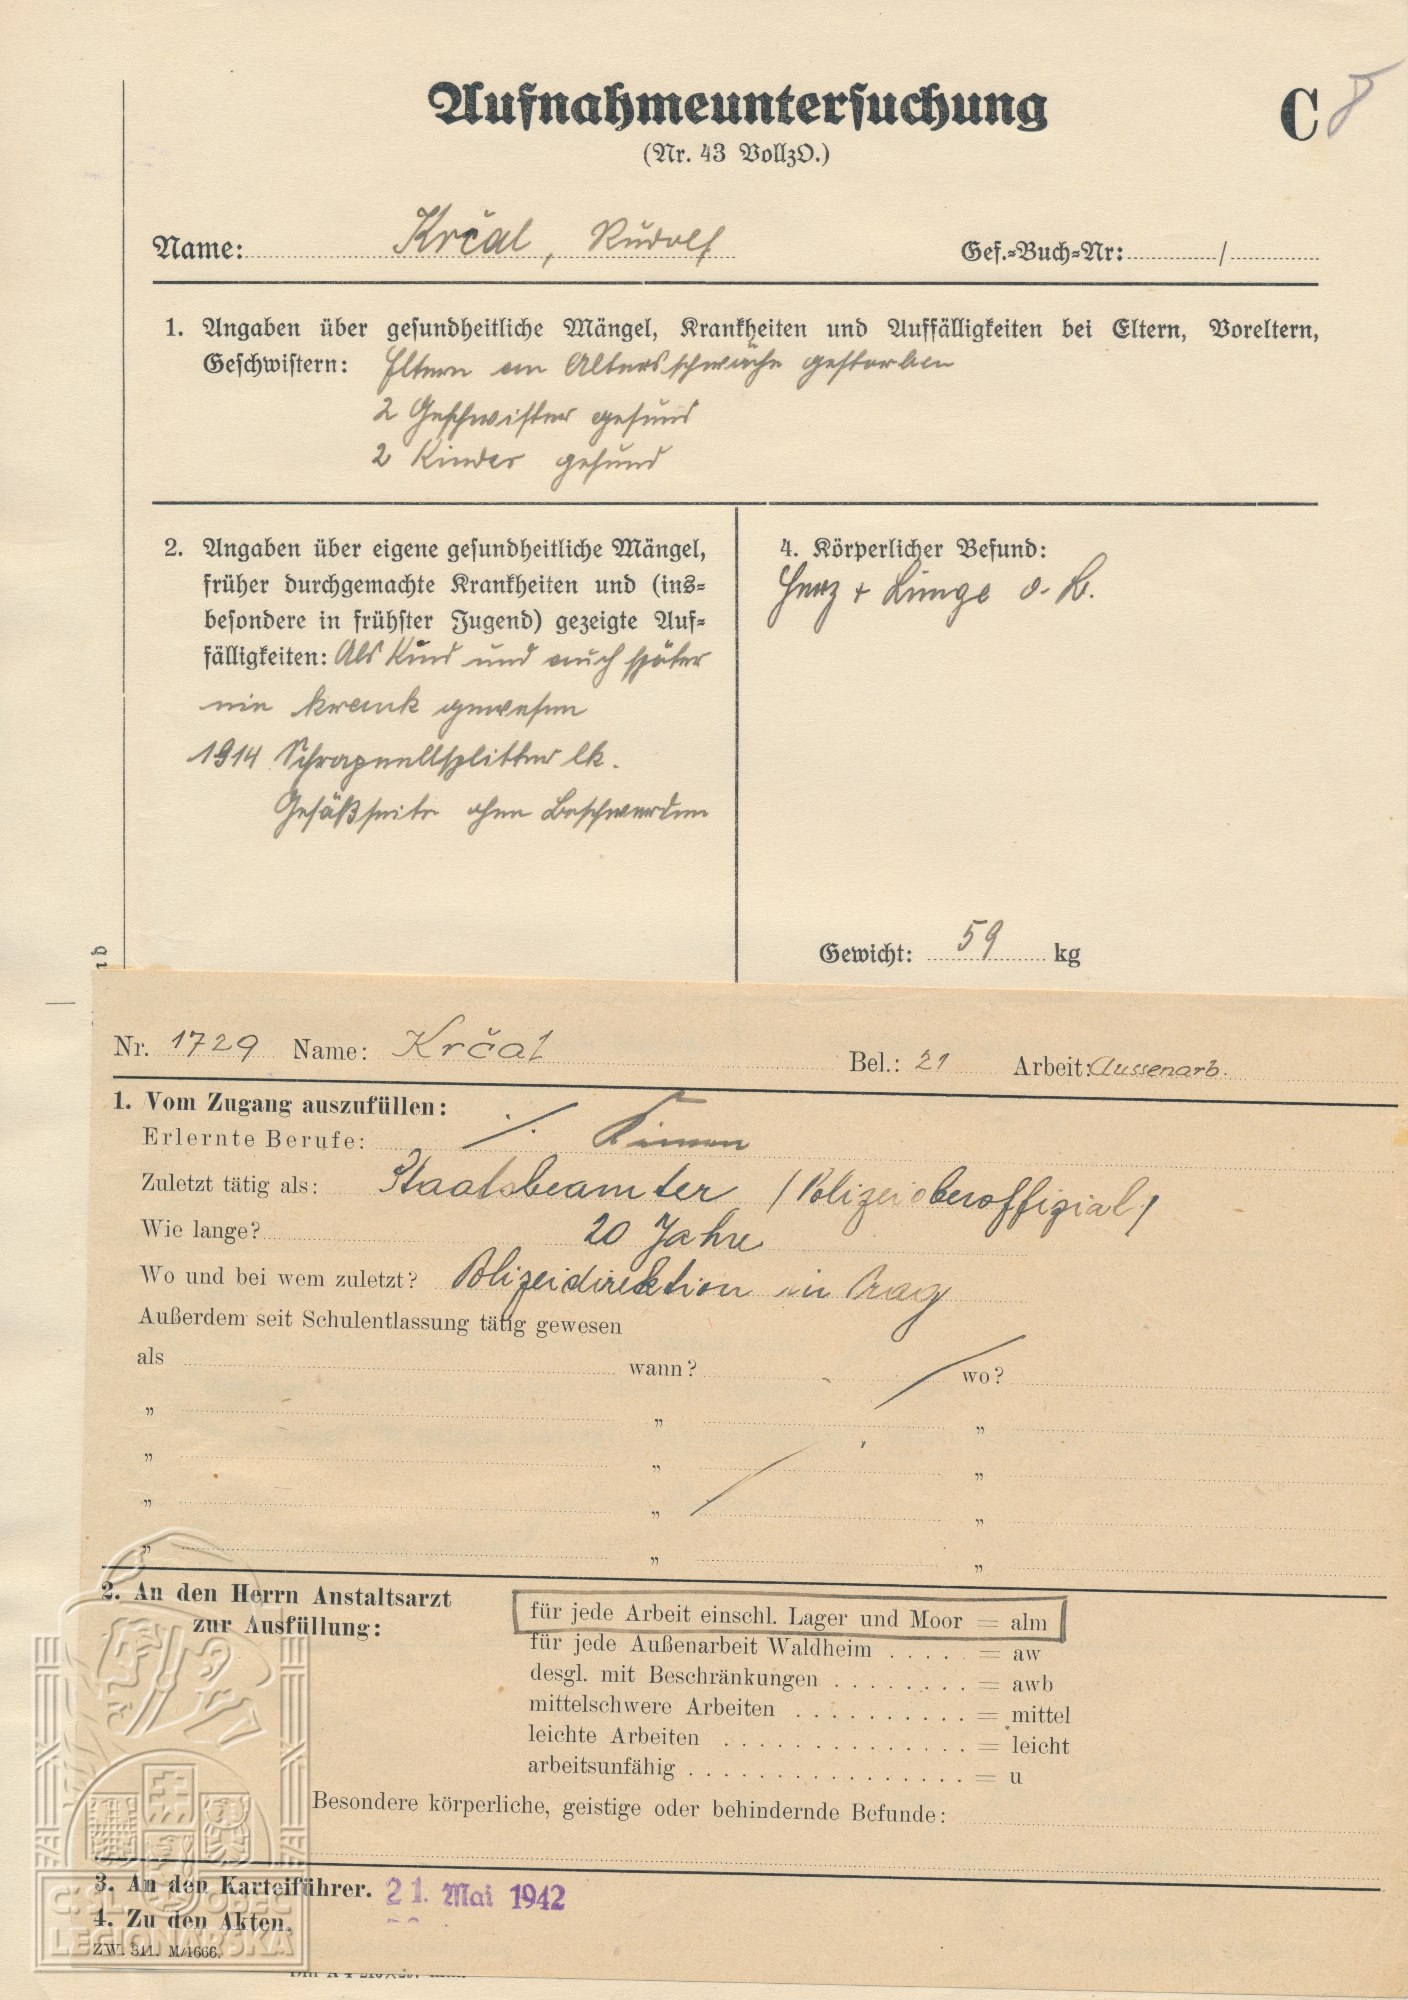 Aufnahmeuntersuchung
C 8
(Nr. 43 VollzO.)
Name: Krčal, Rudolf
Gef.-Buch-Nr: /
1. Angaben über gesundheitliche Mängel, Krankheiten und Auffälligkeiten bei Eltern, Voreltern,
Geschwistern: Eltern an Altersschwäche gestorben
2 Geschwister gesund
2 Kinder gesund
2. Angaben über eigene gesundheitliche Mängel,
früher durchgemachte Krankheiten und (ins-
besondere in frühster Jugend) gezeigte Auf-
fälligkeiten: Als Kind und auch später
nie krank gewesen
1914 Schrapnellsplitter lk.
Gesäßseite ohne Beschwerden
4. Körperlicher Befund:
Herz + Lunge o. B.
Gewicht: 59 kg
Nr. 1729 Name: Krčal Bel.: 21 Arbeit: Aussenarb.
1. Vom Zugang auszufüllen:
Erlernte Berufe: ./.
Zuletzt tätig als: Staatsbeamter /Polizeioberoffizial/
Wie lange? 20 Jahre
Wo und bei wem zuletzt? Polizeidirektion in Prag
Außerdem seit Schulentlassung tätig gewesen
als wann? wo?
" " "
" " "
" " "
" " "
2. An den Herrn Anstaltsarzt
zur Ausfüllung:
für jede Arbeit einschl. Lager und Moor = alm
für jede Außenarbeit Waldheim . . . . . = aw
desgl. mit Beschränkungen . . . . . . . . = awb
mittelschwere Arbeiten . . . . . . . . . . = mittel
leichte Arbeiten . . . . . . . . . . . . . . = leicht
arbeitsunfähig . . . . . . . . . . . . . . . . = u
Besondere körperliche, geistige oder behindernde Befunde:
3. An den Karteiführer. 21. Mai 1942
4. Zu den Akten.
ZW. 311. M/1666.
ČSL OBEC
LEGIONÁŘSKÁ